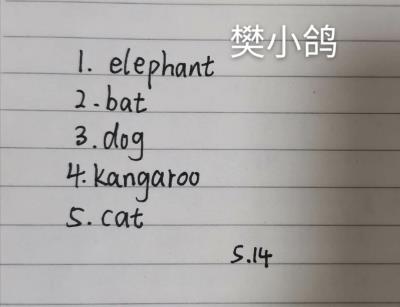 樊小鸽
1. elephant
2.bat
3.dog
4.kangaroo
5.cat
5.14